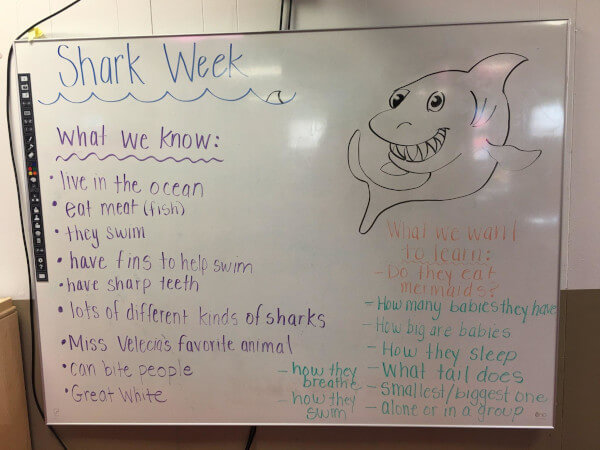 Shark Week
What we know:
• live in the ocean
• eat meat (fish)
• they swim
• have fins to help swim
• have sharp teeth
• lots of different kinds of sharks
• Miss Velecia's favorite animal
• can bite people
• Great White
What we want
to learn:
- Do they eat
mermaids?
- How many babies they have
- How big are babies
- How they sleep
- What tail does
- Smallest/biggest one
- alone or in a group
- how they
breathe
- how they
swim